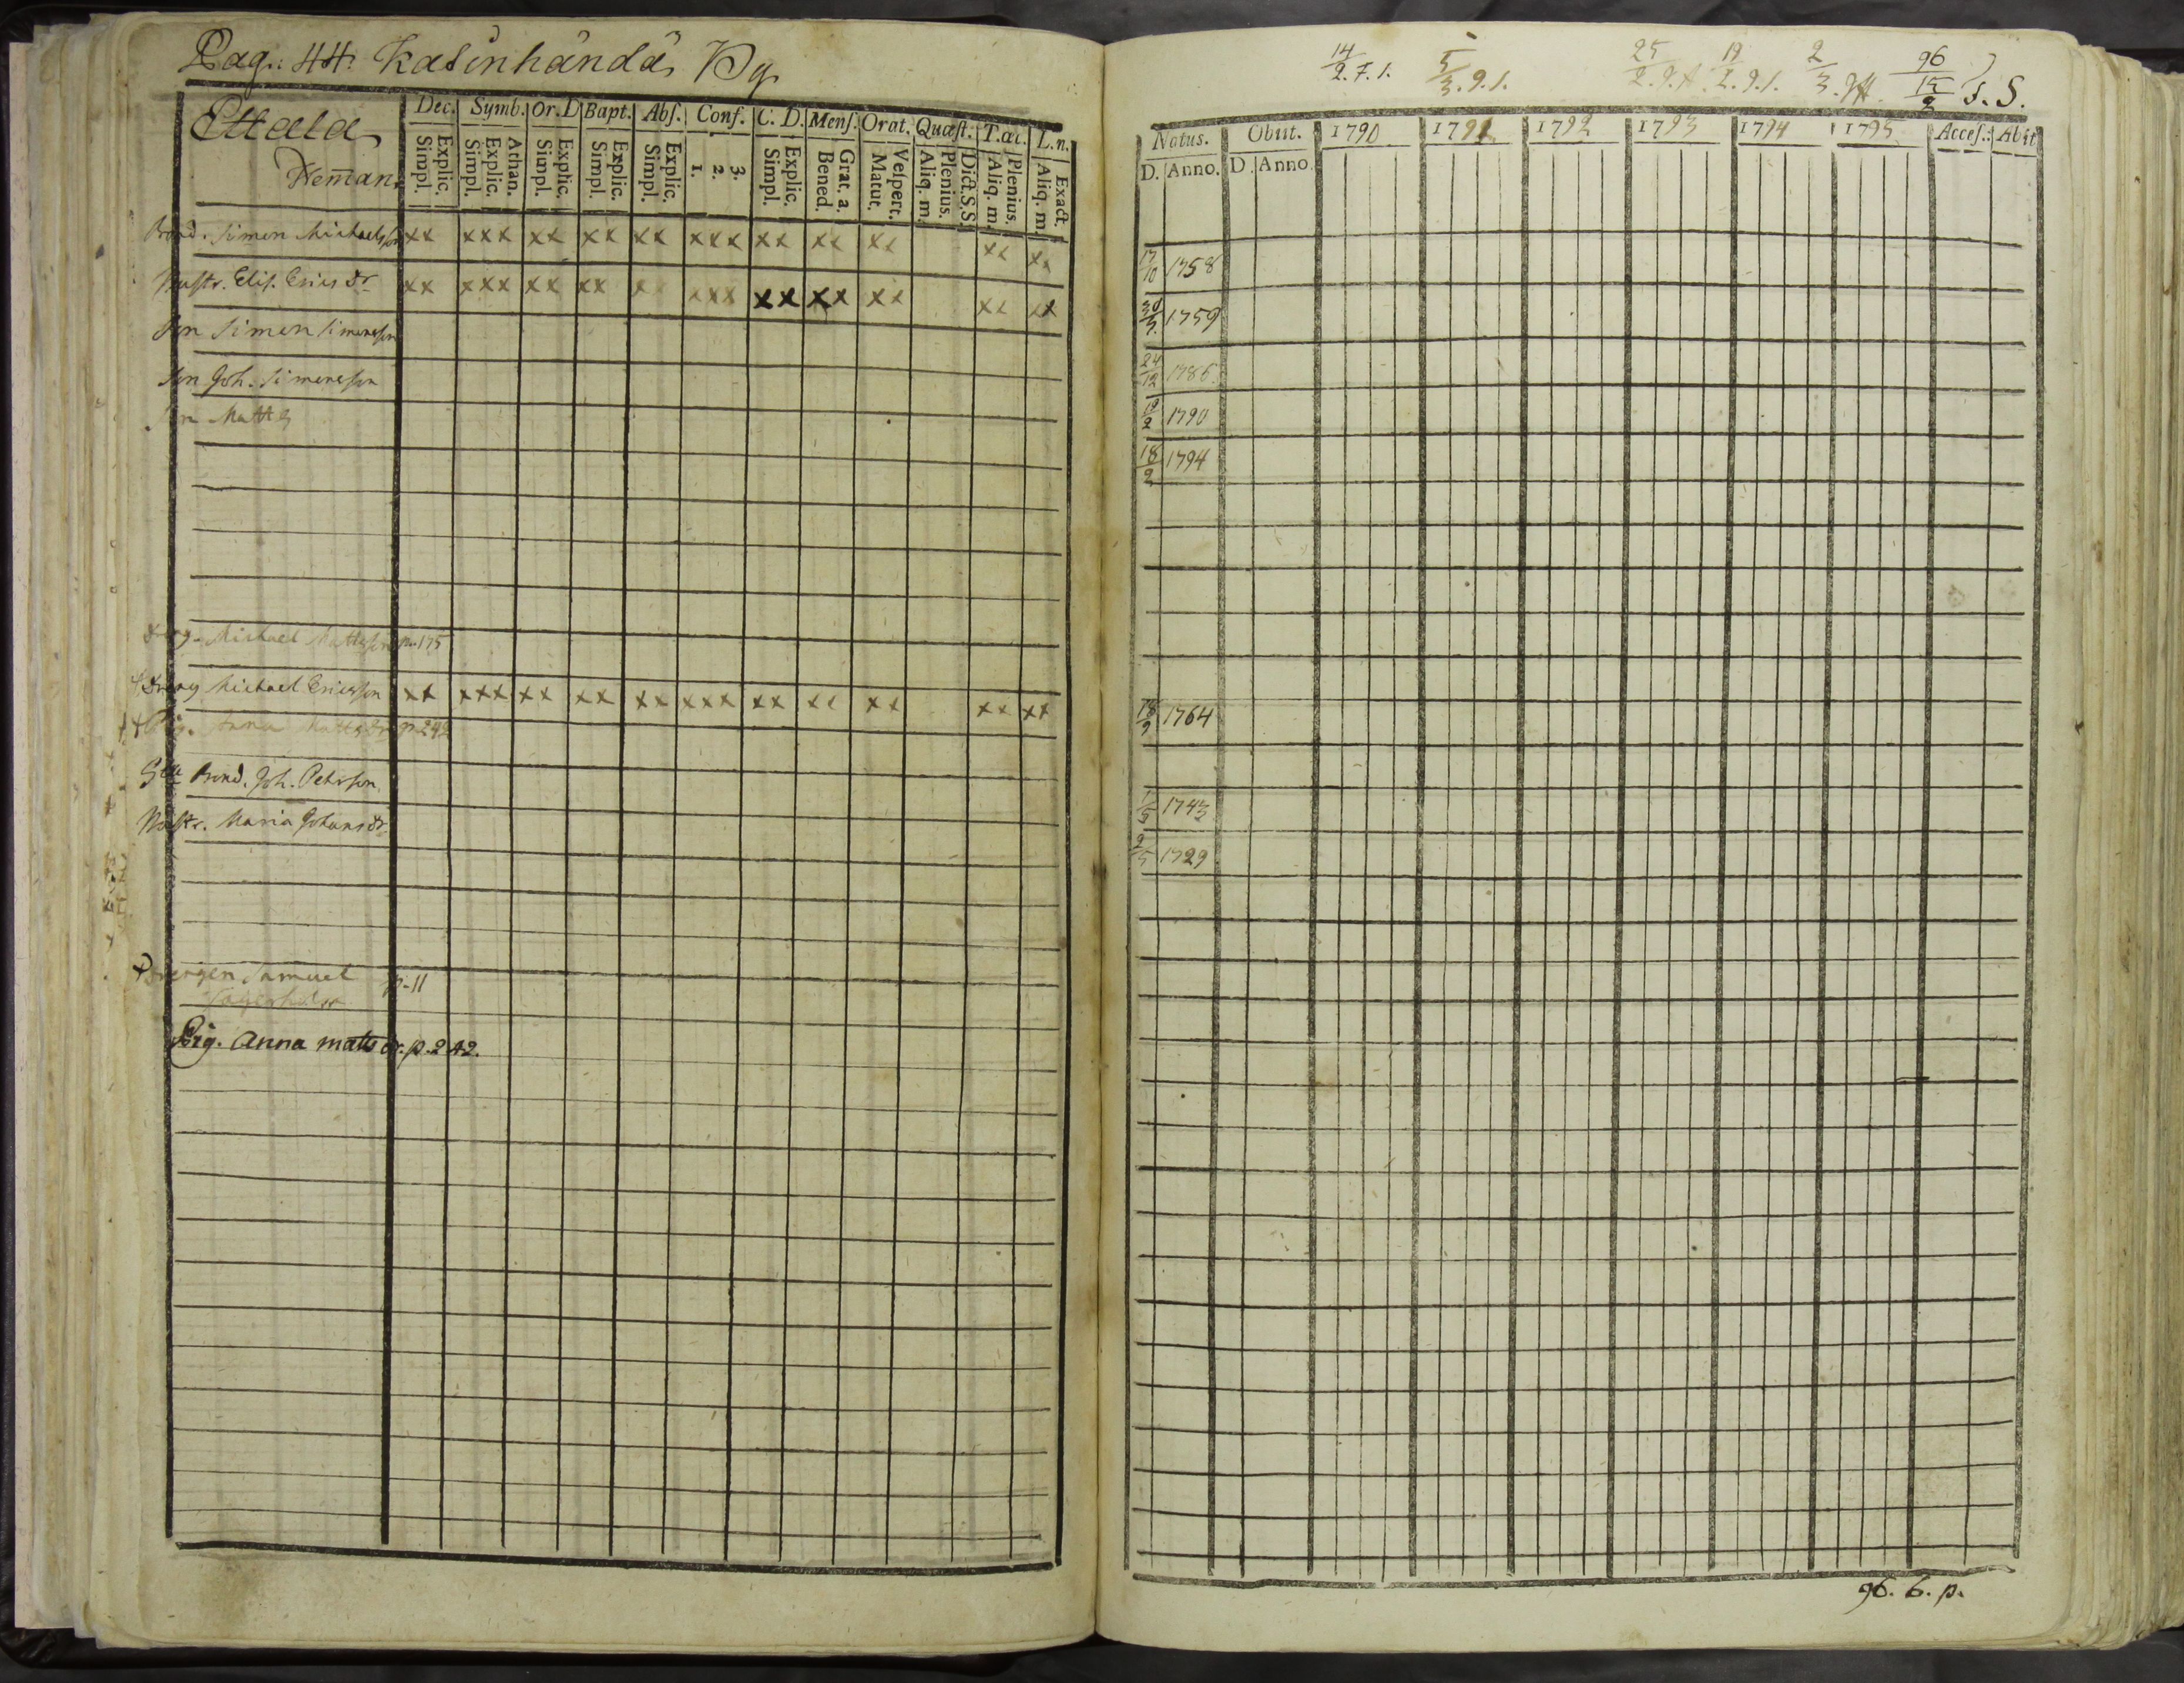 Pag: 44. Kasinhändä By
Ettala
Nemän.
Dec. Symb. Or. D Bapt. Abſ. Conf. C. D. Menſ. Orat. Quæſt. T. œc. L. n.
Explic. Simpl. Athan. Explic. Simpl. Explic. Simpl. Explic. Simpl. Explic. Simpl. 3. 2. 1. Explic. Simpl. Grat. a. Bened. Veſpert. Matut. Dict. S. S. Plenius. Aliq. m. Plenius. Aliq. m. Exact. Aliq. m.
Bond. Simon Michaelsson xx xxx xx xx xx xxx xx xx xx xx xx
Hustr. Elis. Erics dr xx xxx xx xx xx xxx xx xx xx xx xx
Son Simon Simonsson
Son Joh. Simonsson
Son Matts
Dreng. Michael Mattsson p. 175
Dreng Michael Ericsson xx xxx xx xx xx xxx xx xx xx xx xx
Pig. Anna Matts dr p. 242
Gla Bond. Joh. Pehrson
Hustr. Maria Johans dr
Drengen Samuel p. 11
Pig. Anna matts dr. p. 242.
14/2. F. 1. 5/3. 9. 1. 25/2. 9. 19/2. 9. 1. 2/3. 96 15/2 S. S.
Natus. Obiit. 1790 1791 1792 1793 1794 1795 Acceſ.: Abit
D. Anno. D. Anno.
17/10 1758
30/3. 1759
24/12 1786.
19/2 1790
18/2 1794
1764
1743
2/5 1729
96. 6. p.